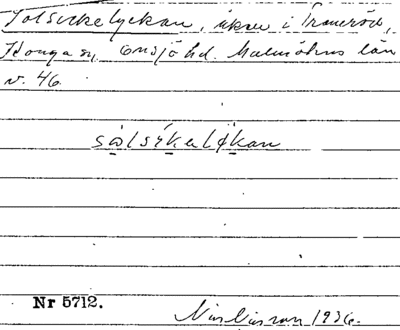 Solsickelyckan, åker i Traneröd,
Konga sn, Onsjö hd. Malmöhus län
v. 46.
sȯlsikelykan
Nr 5712.
Nils Nilsson 1936.